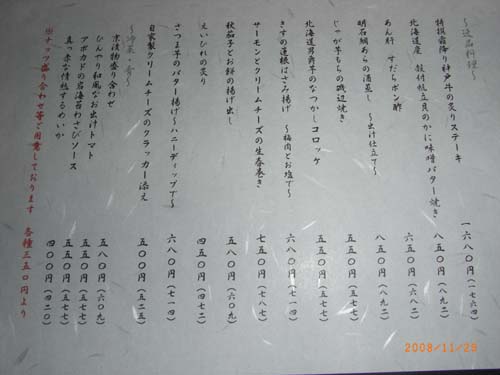 ～逸品料理～
特撰霜降り神戸牛の炙りステーキ 一六八〇円（一七六四）
北海道産 殻付帆立貝のかに味噌バター焼き 八五〇円（八九二）
あん肝 すだちポン酢 六五〇円（六八二）
明石鯛あらの酒蒸し ～出汁仕立て～ 八五〇円（八九二）
じゃが芋もちの磯辺焼き 五五〇円（五七七）
北海道男爵芋のなつかしコロッケ 五五〇円（五七七）
きすの蓮根はさみ揚げ ～梅肉とお塩で～ 六八〇円（七一四）
サーモンとクリームチーズの生春巻き 七五〇円（七八七）
秋茄子とお餅の揚げ出し 五八〇円（六〇九）
えいひれの炙り 四五〇円（四七二）
さつま芋のバター揚げ～ハニーディップで～ 六八〇円（七一四）
自家製クリームチーズのクラッカー添え 五〇〇円（五二五）
～冷菜・肴～
京漬物盛り合わせ 五八〇円（六〇九）
ひんやり和風なお出汁トマト 五五〇円（五七七）
アボカドの岩海苔わさびソース 五五〇円（五七七）
真っ赤な情熱するめいか 四〇〇円（四二〇）
※ナッツ盛り合わせ等ご用意しております 各種三五〇円より
2008/11/29